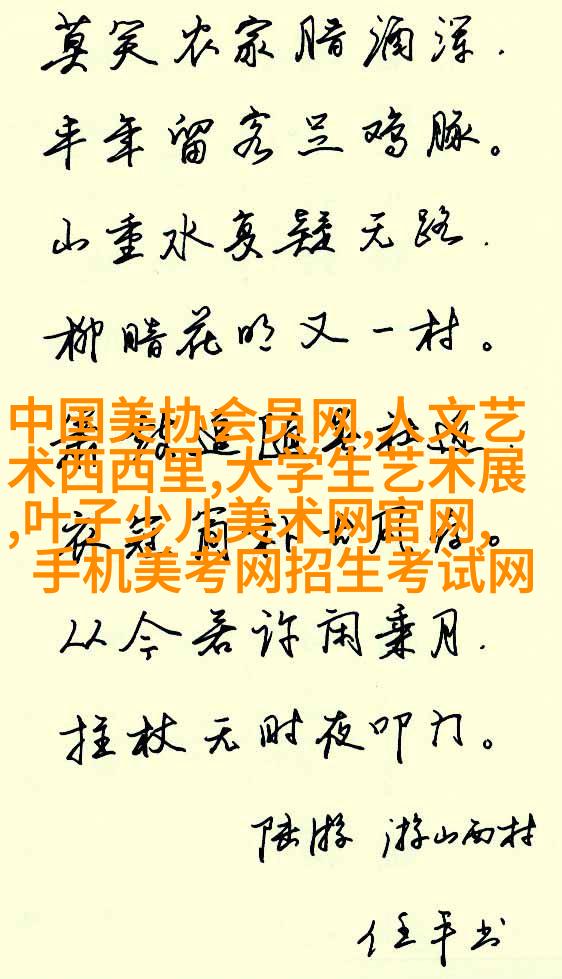 莫笑农家腊酒浑.
丰年留客足鸡豚。
山重水复疑无路.
柳暗花明又一村。
中国美协会员网,人文艺
术西西里,大学生艺术展
,叶子少儿美术网官网,
手机美考网招生考试网
从今若许闲乘月.
拄杖无时夜叩门。
陆游 游山西村
任平书